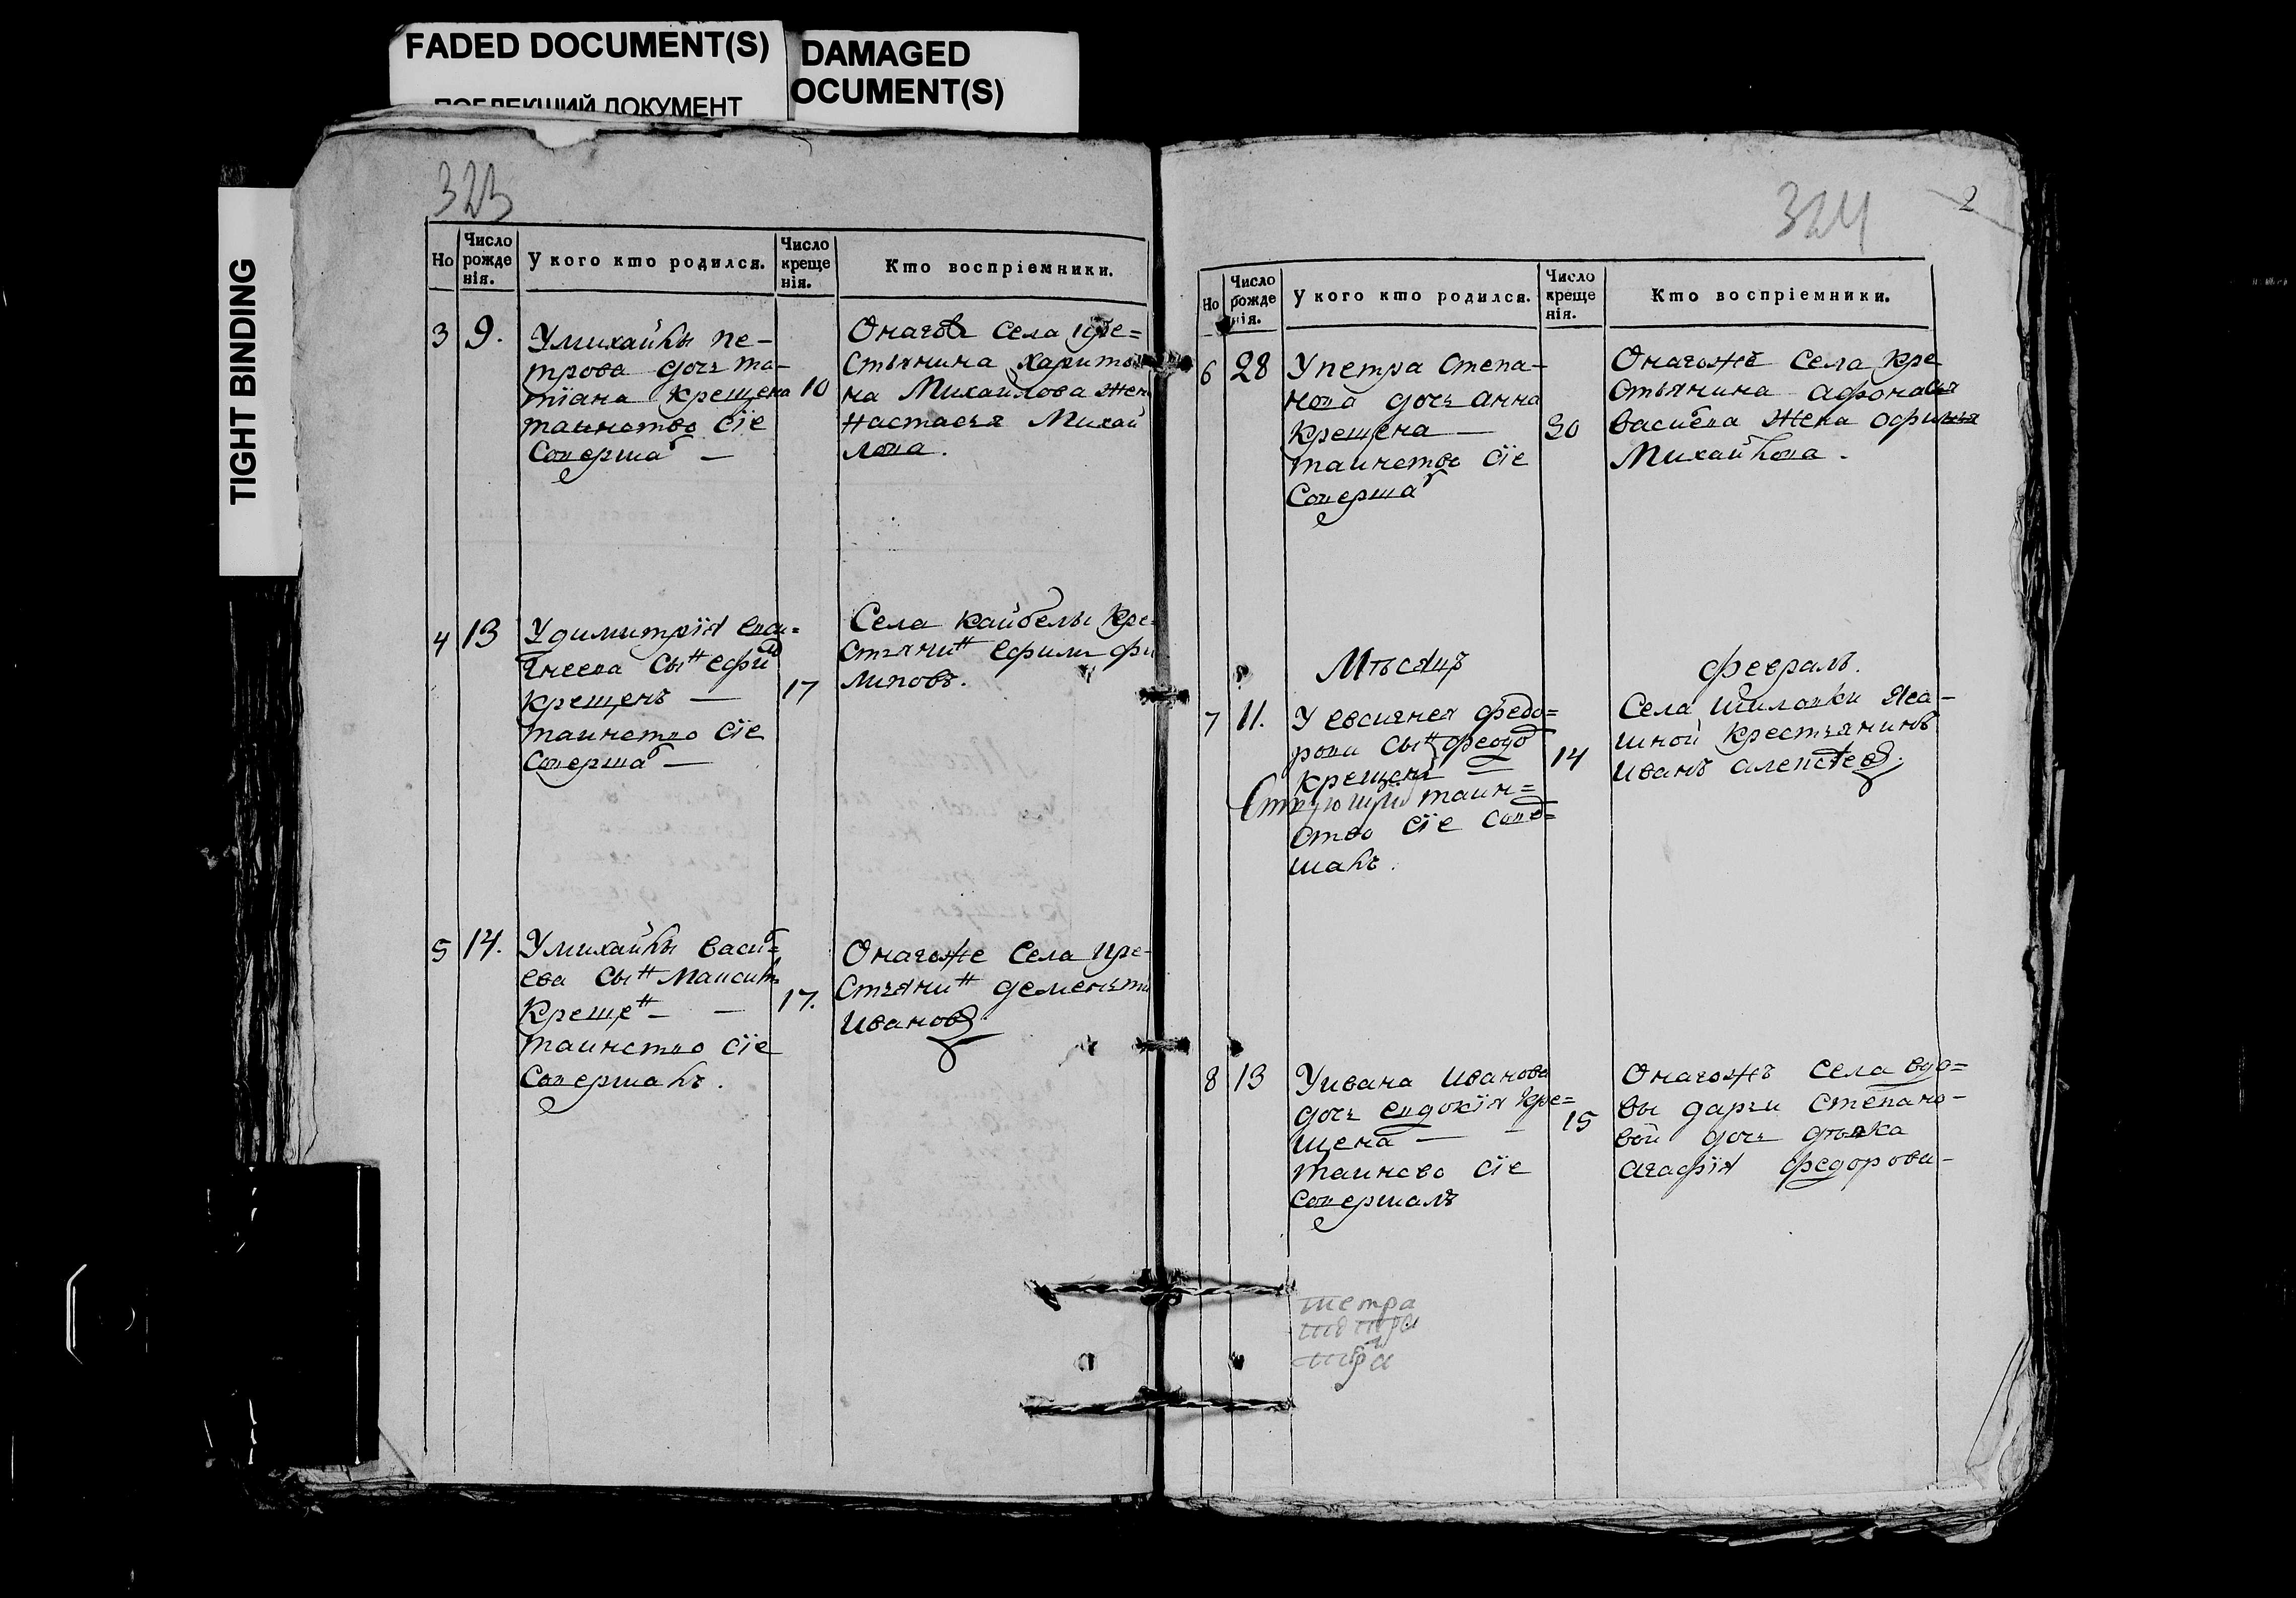 FADED DOCUMENT(S)
ПОБЛЕКШИЙ ДОКУМЕНТ
DAMAGED
OCUMENT(S)
TIGHT BINDING
323
Но
Число рожде нія.
У кого кто родился.
Число креще нія.
Кто воспріемники.
3 9.
Умихайлы пе-
трова дочь та-
тіана крещена 10
таинство сіе
Соверша
Онагож села кре=
стьянина харито
на Михаилова жен
Настасья Михаи
лова.
4 13
Удимитрія евси=
гнеева сынъ Ефи
крещенъ — 17
таинство сіе
Соверша —
Села кайбелы кре-
стьянинъ Ефимъ фи
липовъ.
5 14.
Умихайлы васи=
ева сынъ Максим
Крещен — 17.
таинство сіе
Совершалъ.
Онагоже села кре-
стьянинъ деменьти
Ивановъ
324
2
Но
Число рожде нія.
У кого кто родился.
Число креще нія.
Кто воспріемники.
6 28
Упетра степа-
нова дочь анна
крещена — 30
таинство сіе
Соверша
Онагожъ села кре
стьянина афонасья
василева жена офимья
Михайлова.
Мѣсяцъ февраль.
7 11.
У евсигнея федо=
рова сынъ феодо
крещенъ — 14
таин=
ство сіе сове=
шалъ.
Села шиловки Яса-
шной крестьянинъ
иванъ алексеев.
8 13
Уивана иванова
дочь евдокія кре=
щена — 15
таинсво сіе
совершалъ
Онагожъ села вдо=
вы дарьи степано-
вой дочь дѣвка
агафія федорова-
тетра